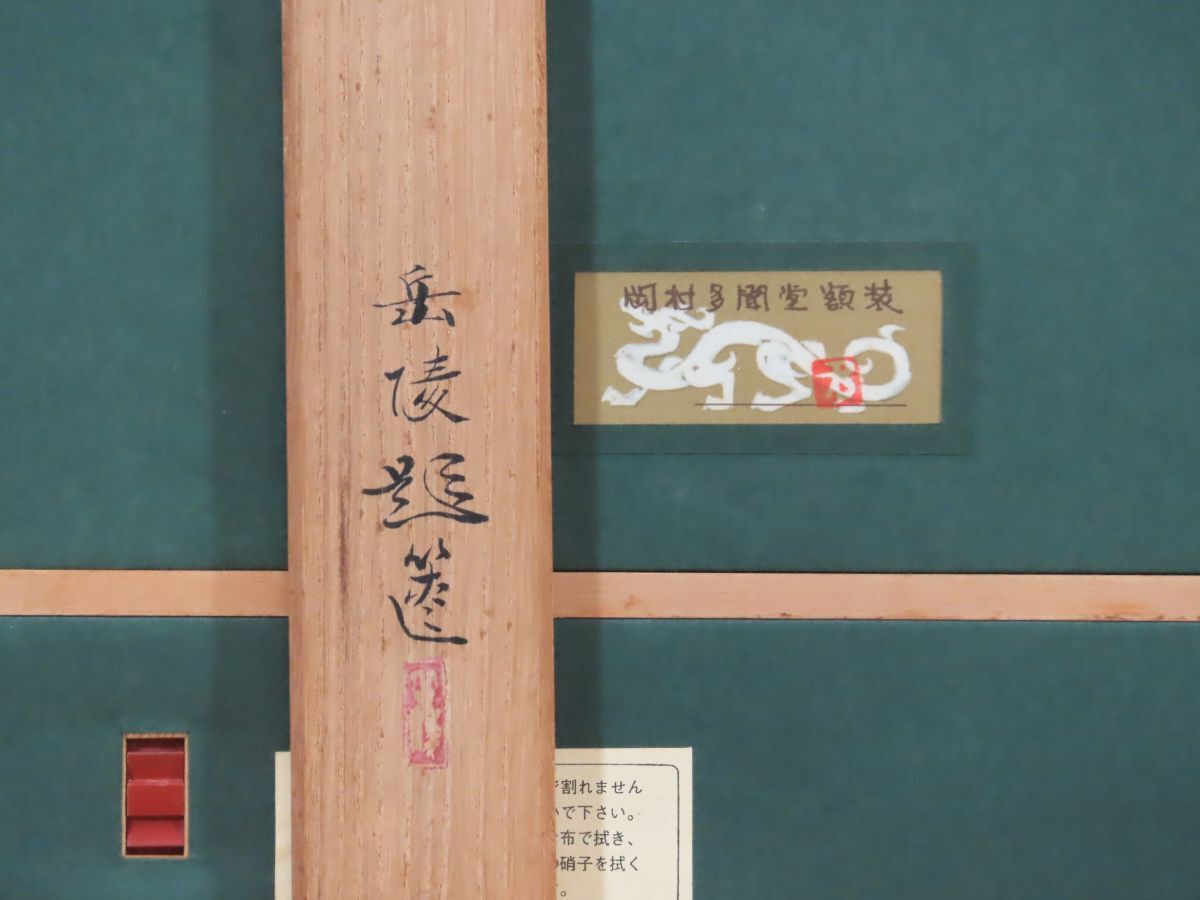 岳陵題簽
岡村多聞堂額装
割れません
で下さい。
布で拭き、
硝子を拭く
。